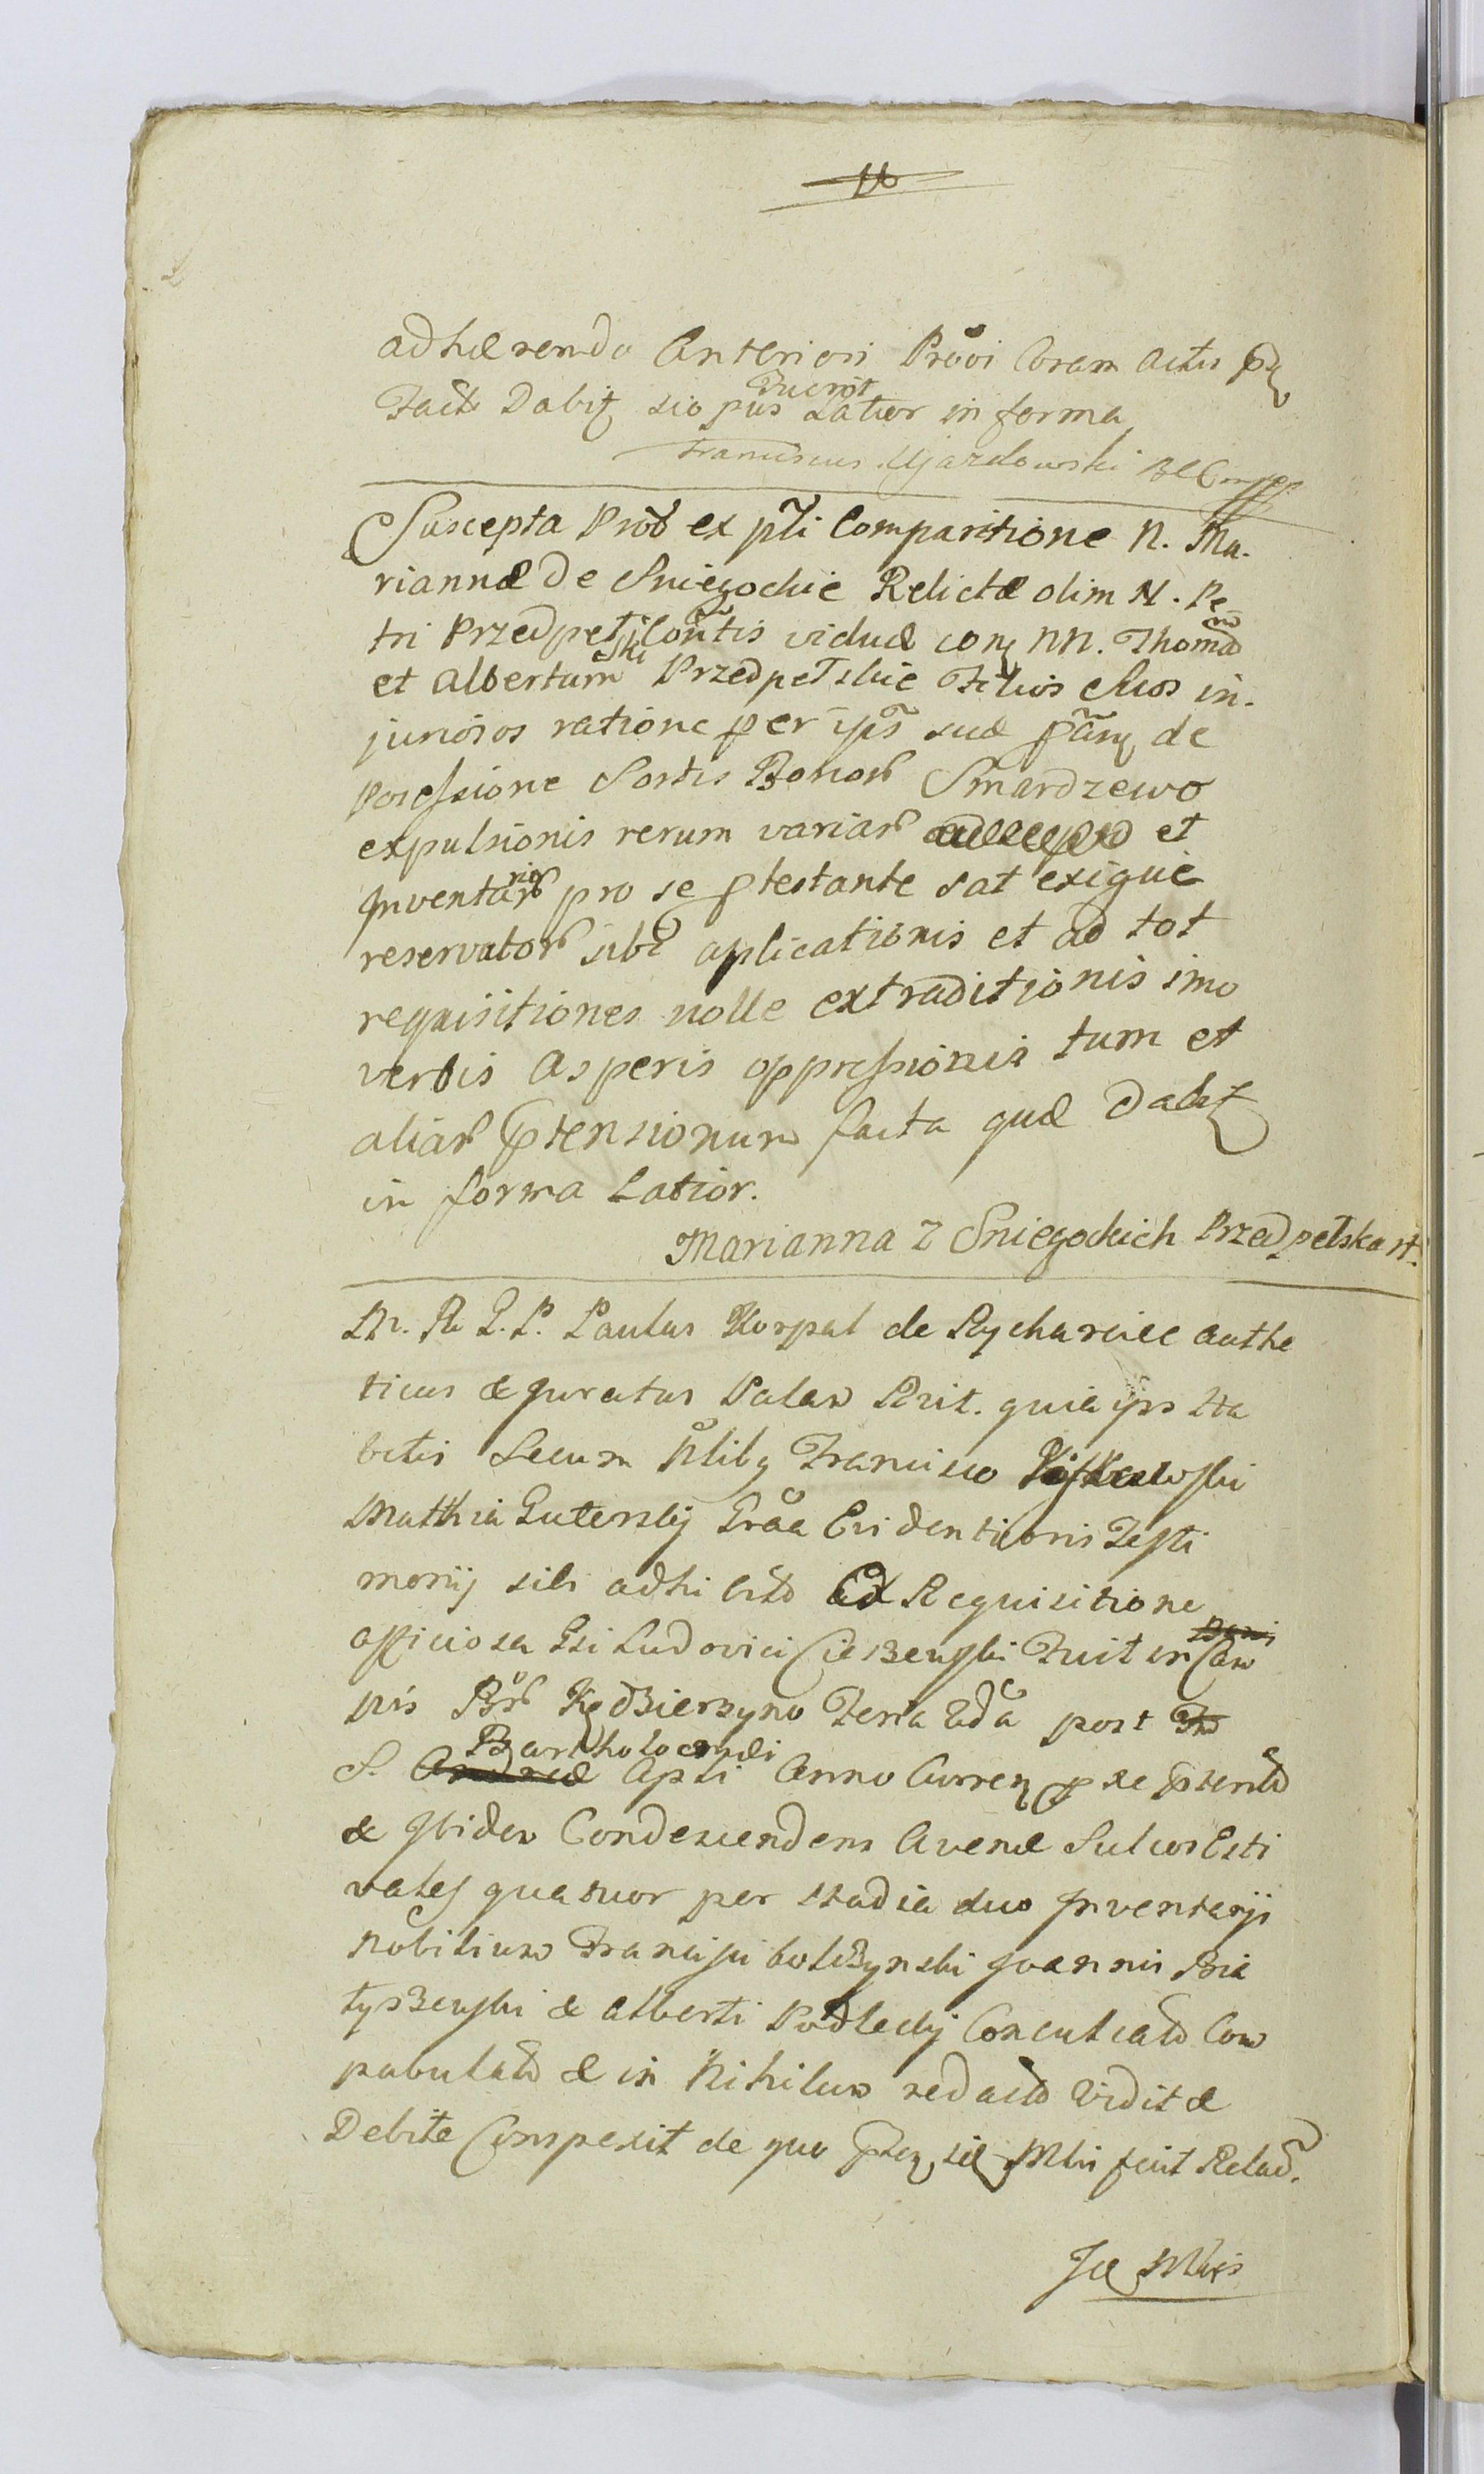 adhærendo Anteriori Prõoi Coram Actis
Fact Dabit si opus Fuerit Latior in forma
Franciscus Ujazdowski
Suscepta Prõb ex pťi Comparitione N. Ma-
riannæ De Sniegockie Relictæ olim N. Pe-
tri Przedpełski Contis viduæ con NN. Thomam
et Albertum Przedpełskie Filios suos in-
juriosos ratione per ips suæ de
possessione Sortis Bonor Smardzewo
expulsionis rerum variar et
Inventarior pro se ptestante sat exigue
reservator sibi aplicationis et ad tot
requisitiones nolle extraditionis imo
verbis Asperis oppressionis tum et
aliar ptensionum facta quæ Dabit
in forma Latior.
Marianna z Sniegockich Przedpełska
Paulus Korpal de Rycharcice authe
ticus & Juratus Palam Rit. quia ips Ha
bitis Secum Nlib Francisco
Matthia Luterskij Grãa Evidentioris Testi
monij sibi adhibito Ad Requisitione
officiosa Gsi Ludovici Cieszewski Fuit in Cam
pis Bor Kędzierzyno Feria 2da post
S. Andreæ Bartholomæi Apli Anno Curren p se ptento
& Ibidem Condescendens Avenæ Sulcos Esti
vales quatuor per stadia duo Inventarij
Nobilium Francisci Joannis Bia
łyszewski & Alberti Podlecki Conculcato Com
pabulato & in Nihilum redacto Vidit &
Debite Conspexit de quo sic Mhi fecit Relaõ.